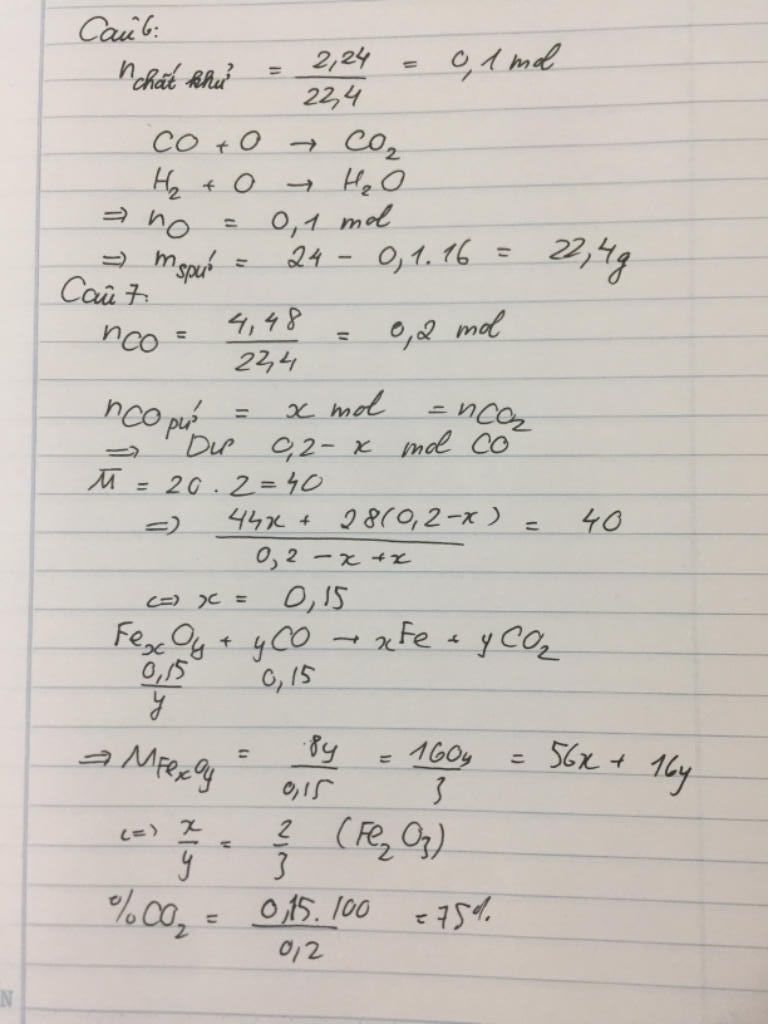 Câu 6:
n chất khử = 2,24 / 22,4 = 0,1 mol
CO + O → CO₂
H₂ + O → H₂O
⇒ nO = 0,1 mol
⇒ m spứ = 24 - 0,1.16 = 22,4g
Câu 7:
nCO = 4,48 / 22,4 = 0,2 mol
nCO pứ = x mol = nCO₂
⇒ Dư 0,2 - x mol CO
M̅ = 20 . 2 = 40
⇒ 44x + 28(0,2-x) / 0,2 - x + x = 40
<=> x = 0,15
FexOy + yCO → xFe + yCO₂
0,15 / y 0,15
⇒ MFexOy = 8y / 0,15 = 160y / 3 = 56x + 16y
<=> x / y = 2 / 3 (Fe₂O₃)
%CO₂ = 0,15.100 / 0,2 = 75%
N